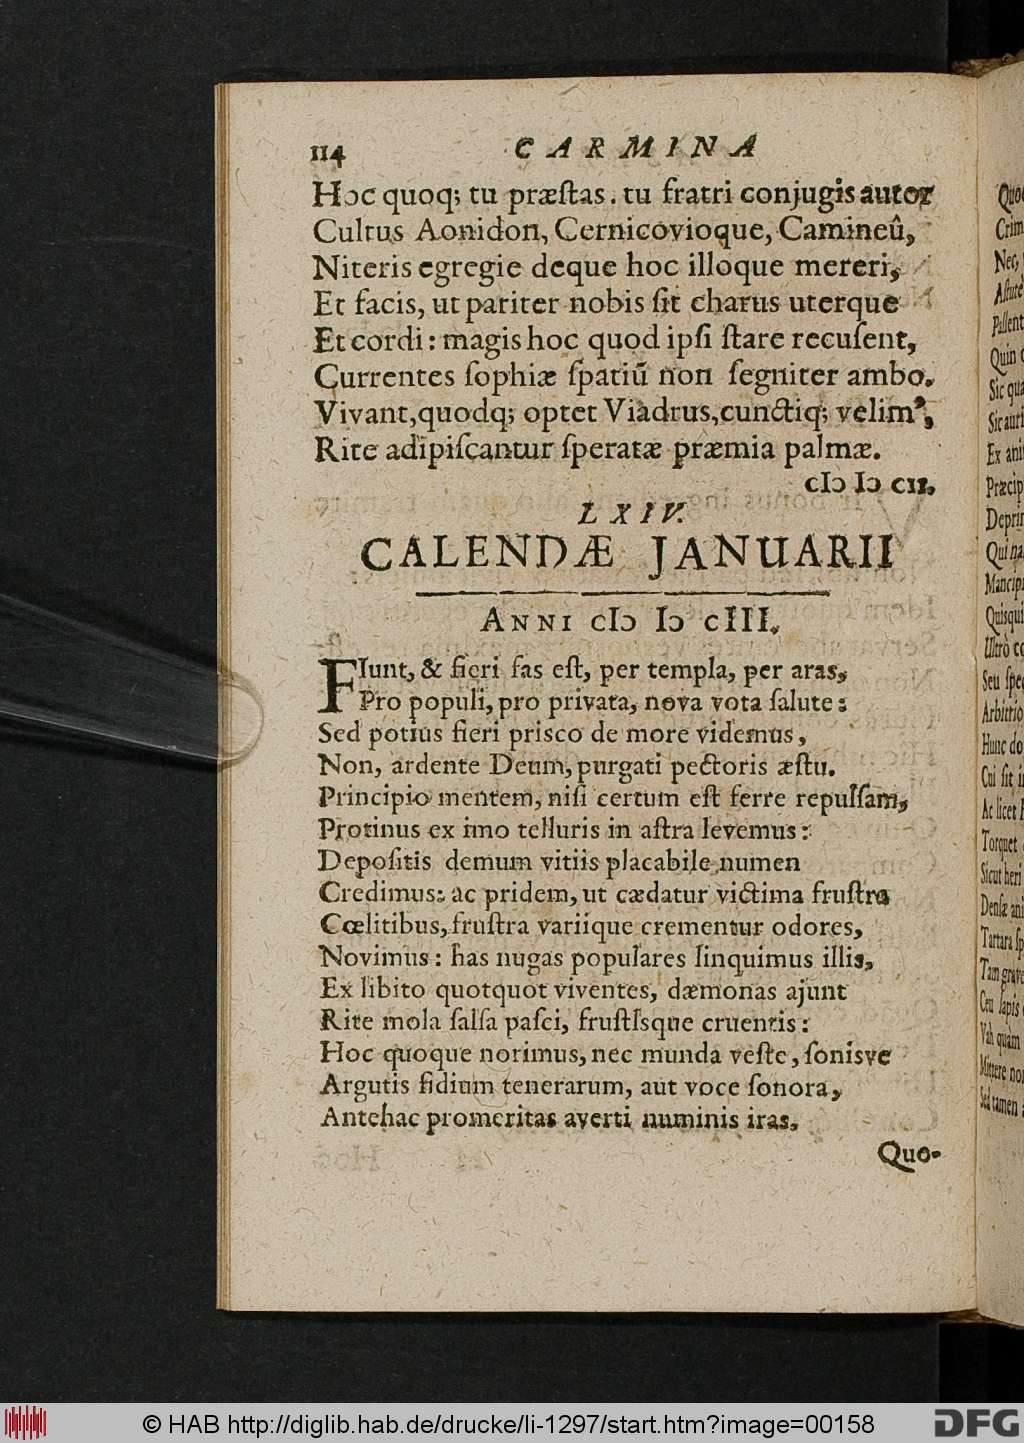 114 CARMINA
Hoc quoq; tu præſtas. tu fratri conjugis autor
Cultus Aonidon, Cernicovioque, Camineû,
Niteris egregie deque hoc illoque mereri,
Et facis, ut pariter nobis ſit charus uterque
Et cordi: magis hoc quod ipſi ſtare recuſent,
Currentes ſophiæ ſpatiũ non ſegniter ambo.
Vivant, quodq; optet Viadrus, cunctiq; velimꝰ,
Rite adipiſcantur ſperatæ præmia palmæ.
cIↄ Iↄ cII.
LXIV.
CALENDÆ JANUARII
ANNI cIↄ Iↄ cIII.
FIunt, & fieri fas eſt, per templa, per aras,
Pro populi, pro privata, nova vota ſalute:
Sed potius fieri priſco de more videmus,
Non, ardente Deum, purgati pectoris æſtu.
Principio mentem, niſi certum eſt ferre repulſam,
Protinus ex imo telluris in aſtra levemus:
Depoſitis demum vitiis placabile numen
Credimus: ac pridem, ut cædatur victima fruſtra
Cœlitibus, fruſtra variique crementur odores,
Novimus: has nugas populares linquimus illis,
Ex libito quotquot viventes, dæmonas ajunt
Rite mola ſalſa paſci, fruſtisque cruentis:
Hoc quoque norimus, nec munda veſte, ſonisve
Argutis fidium tenerarum, aut voce ſonora,
Antehac promeritas averti numinis iras.
Quo-
Crim
Nec,
Aſtute
Pallent
Quin
Sic qua
Sic auri
Ex ani
Præcip
Deprir
Qui na
Mancipi
Quisqui
Ultrò co
Seu ſpe
Arbitrio
Hunc do
Cui ſit i
Ac licet
Torquet
Sicut heri
Denſæ ani
Tartara ſp
Tam grave
Ceu lapis
Vah quàm
Mittere non
Sed tamen a
© HAB http://diglib.hab.de/drucke/li-1297/start.htm?image=00158
DFG